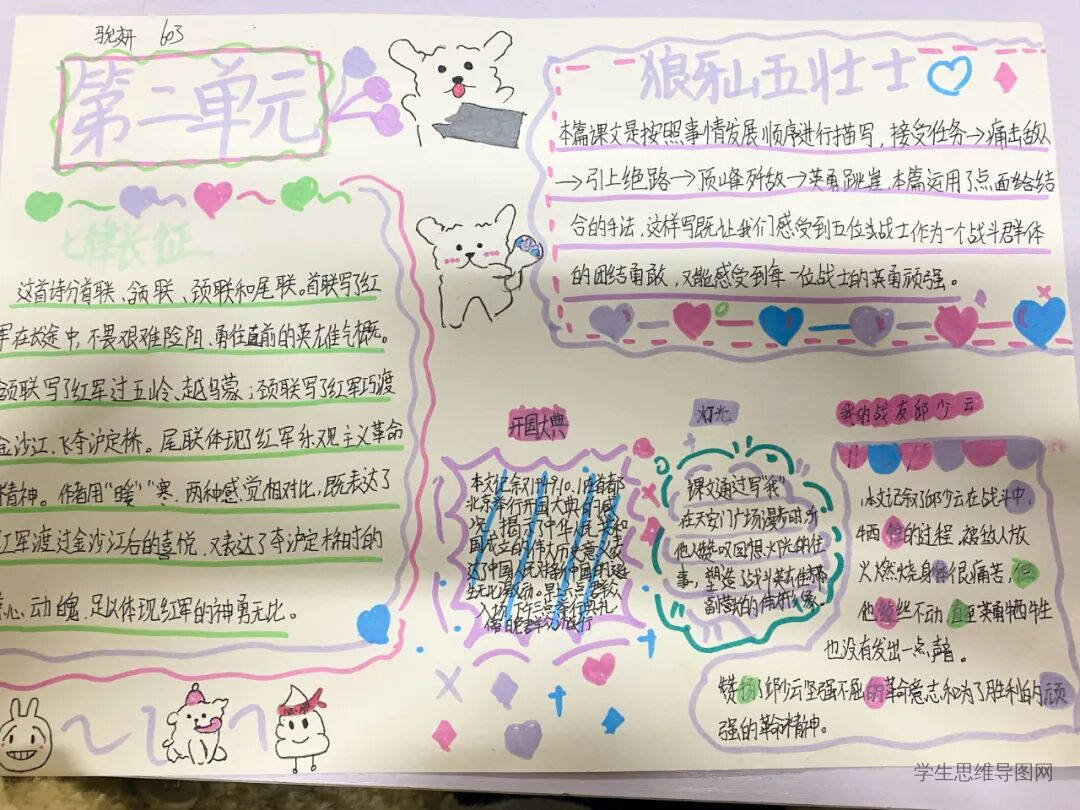 603
第二单元
七律长征
这首诗分首联、颔联、颈联和尾联。首联写了红
军在长途中,不畏艰难险阻、勇往直前的英雄气概。
颔联写了红军过五岭、越乌蒙;颈联写了红军巧渡
金沙江、飞夺沪定桥。尾联体现了红军乐观主义革命
精神。作者用“暖”“寒”两种感觉相对比,既表达了
红军渡过金沙江后的喜悦,又表达了夺沪定桥时的
心动魄,足以体现红军的神勇无比。
狼牙山五壮士
本篇课文是按照事情发展顺序进行描写,接受任务→痛击敌人
→引上绝路→顶峰歼敌→英勇跳崖,本篇运用了点面给结
合的手法,这样写既让我们感受到五位战士作为一个战斗群体
的团结勇敢,又能感受到每一位战士的英勇顽强。
开国大典
本文记叙了1949.10.1在首都
北京举行开国大典的盛
况,揭示了中华人民共和
国成立的伟大历史意义,表
达了中国人民对新中国的诞
生无比激动。早上六点群众
入场,下午三点举行典礼,
傍晚群众游行
灯光
课文通过写“我”
在天安门广场漫步时,听
他人赞叹回想火光的往
事,塑造了战斗英雄郝
副营长的伟大形象。
我的战友邱少云
本文记叙了邱少云在战斗中
牺牲的过程,被敌人放
火燃烧身体很痛苦,但
他纹丝不动直至英勇牺牲
也没有发出一点声音。
赞扬了邱少云坚强不屈的革命意志和为了胜利的顽
强的革命精神。
学生思维导图网